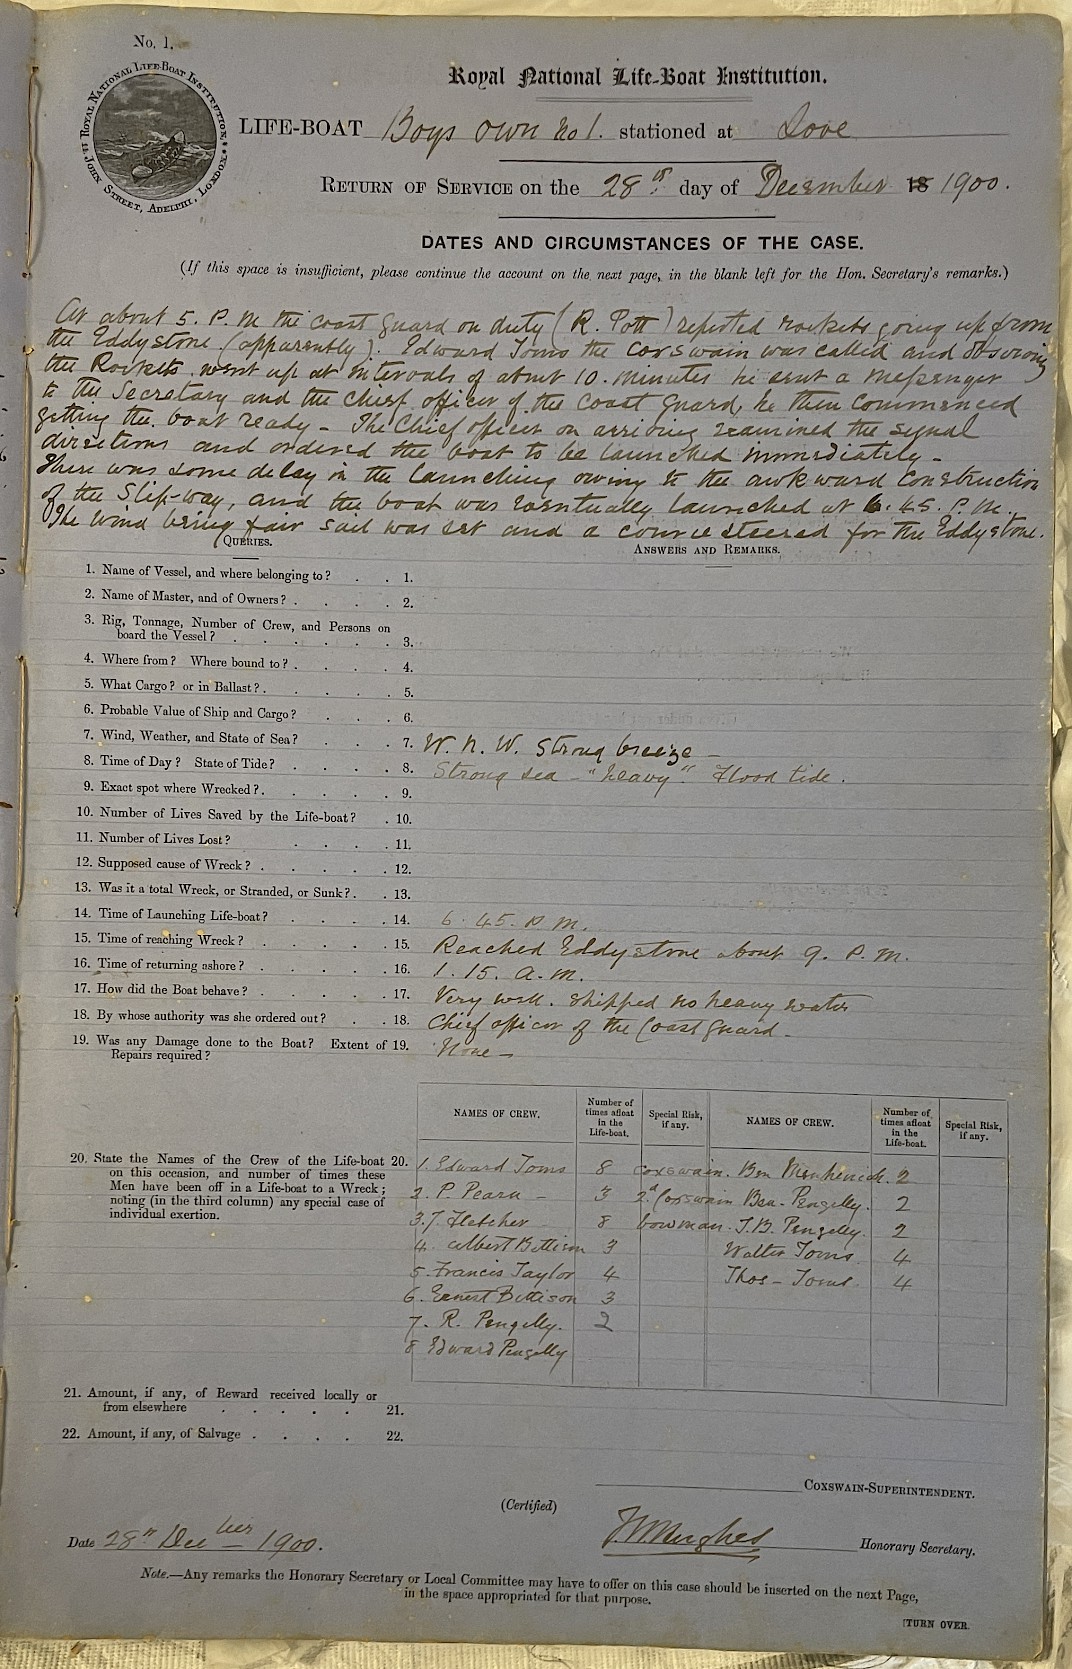 No. 1.
ROYAL NATIONAL LIFE-BOAT INSTITUTION,
JOHN STREET, ADELPHI, LONDON.
Royal National Life-Boat Institution.
LIFE-BOAT Boys own No 1. stationed at Looe
RETURN OF SERVICE on the 28th day of December 18 1900.
DATES AND CIRCUMSTANCES OF THE CASE.
(If this space is insufficient, please continue the account on the next page, in the blank left for the Hon. Secretary's remarks.)
At about 5. P. M the coast guard on duty (R. Pott) reported rockets going up from
the Eddystone (apparently). Edward Toms the coxswain was called and observing
the Rockets went up at intervals of about 10. minutes he sent a messenger
to the Secretary and the chief officer of the Coast Guard, he then commenced
getting the boat ready - The Chief officer on arriving examined the signal
directions and ordered the boat to be launched immediately -
There was some delay in the launching owing to the awkward construction
of the Slip-way, and the boat was eventually launched at 6. 45. P. M.
The wind being fair sail was set and a course steered for the Eddystone.
QUERIES.
ANSWERS AND REMARKS.
1. Name of Vessel, and where belonging to? . . 1.
2. Name of Master, and of Owners? . . . . 2.
3. Rig, Tonnage, Number of Crew, and Persons on
board the Vessel? . . . . . . 3.
4. Where from? Where bound to? . . . . 4.
5. What Cargo? or in Ballast? . . . . . 5.
6. Probable Value of Ship and Cargo? . . . 6.
7. Wind, Weather, and State of Sea? . . . 7. W. N. W. Strong breeze -
8. Time of Day? State of Tide? . . . . 8. Strong sea - "heavy" Flood tide.
9. Exact spot where Wrecked? . . . . . 9.
10. Number of Lives Saved by the Life-boat? . 10.
11. Number of Lives Lost? . . . . 11.
12. Supposed cause of Wreck? . . . . . 12.
13. Was it a total Wreck, or Stranded, or Sunk? . . 13.
14. Time of Launching Life-boat? . . . . 14. 6. 45. P M.
15. Time of reaching Wreck? . . . . . 15. Reached Eddystone about 9. P. M.
16. Time of returning ashore? . . . . . 16. 1. 15. a. m.
17. How did the Boat behave? . . . . . 17. Very well. Shipped no heavy water
18. By whose authority was she ordered out? . . 18. Chief officer of the Coast Guard -
19. Was any Damage done to the Boat? Extent of 19. None -
Repairs required?
NAMES OF CREW. Number of times afloat in the Life-boat. Special Risk, if any. NAMES OF CREW. Number of times afloat in the Life-boat. Special Risk, if any.
20. State the Names of the Crew of the Life-boat 20.
on this occasion, and number of times these
Men have been off in a Life-boat to a Wreck;
noting (in the third column) any special case of
individual exertion.
1. Edward Toms 8 coxswain. Ben 2
2. P. Pearn - 3 2d Coxswain Ben. Pengelly. 2
3. T Fletcher 8 bowman. J. B. Pengelly. 2
4. Albert Bettison 3 Walter Toms 4
5. Francis Taylor 4 Thos - Toms 4
6. Ernest Bettison 3
7. R. Pengelly. 2
8 Edward Pengelly
21. Amount, if any, of Reward received locally or
from elsewhere . . . . . 21.
22. Amount, if any, of Salvage . . . . 22.
COXSWAIN-SUPERINTENDENT.
(Certified)
Date 28th December 1900. Honorary Secretary.
Note.—Any remarks the Honorary Secretary or Local Committee may have to offer on this case should be inserted on the next Page,
in the space appropriated for that purpose.
[TURN OVER.